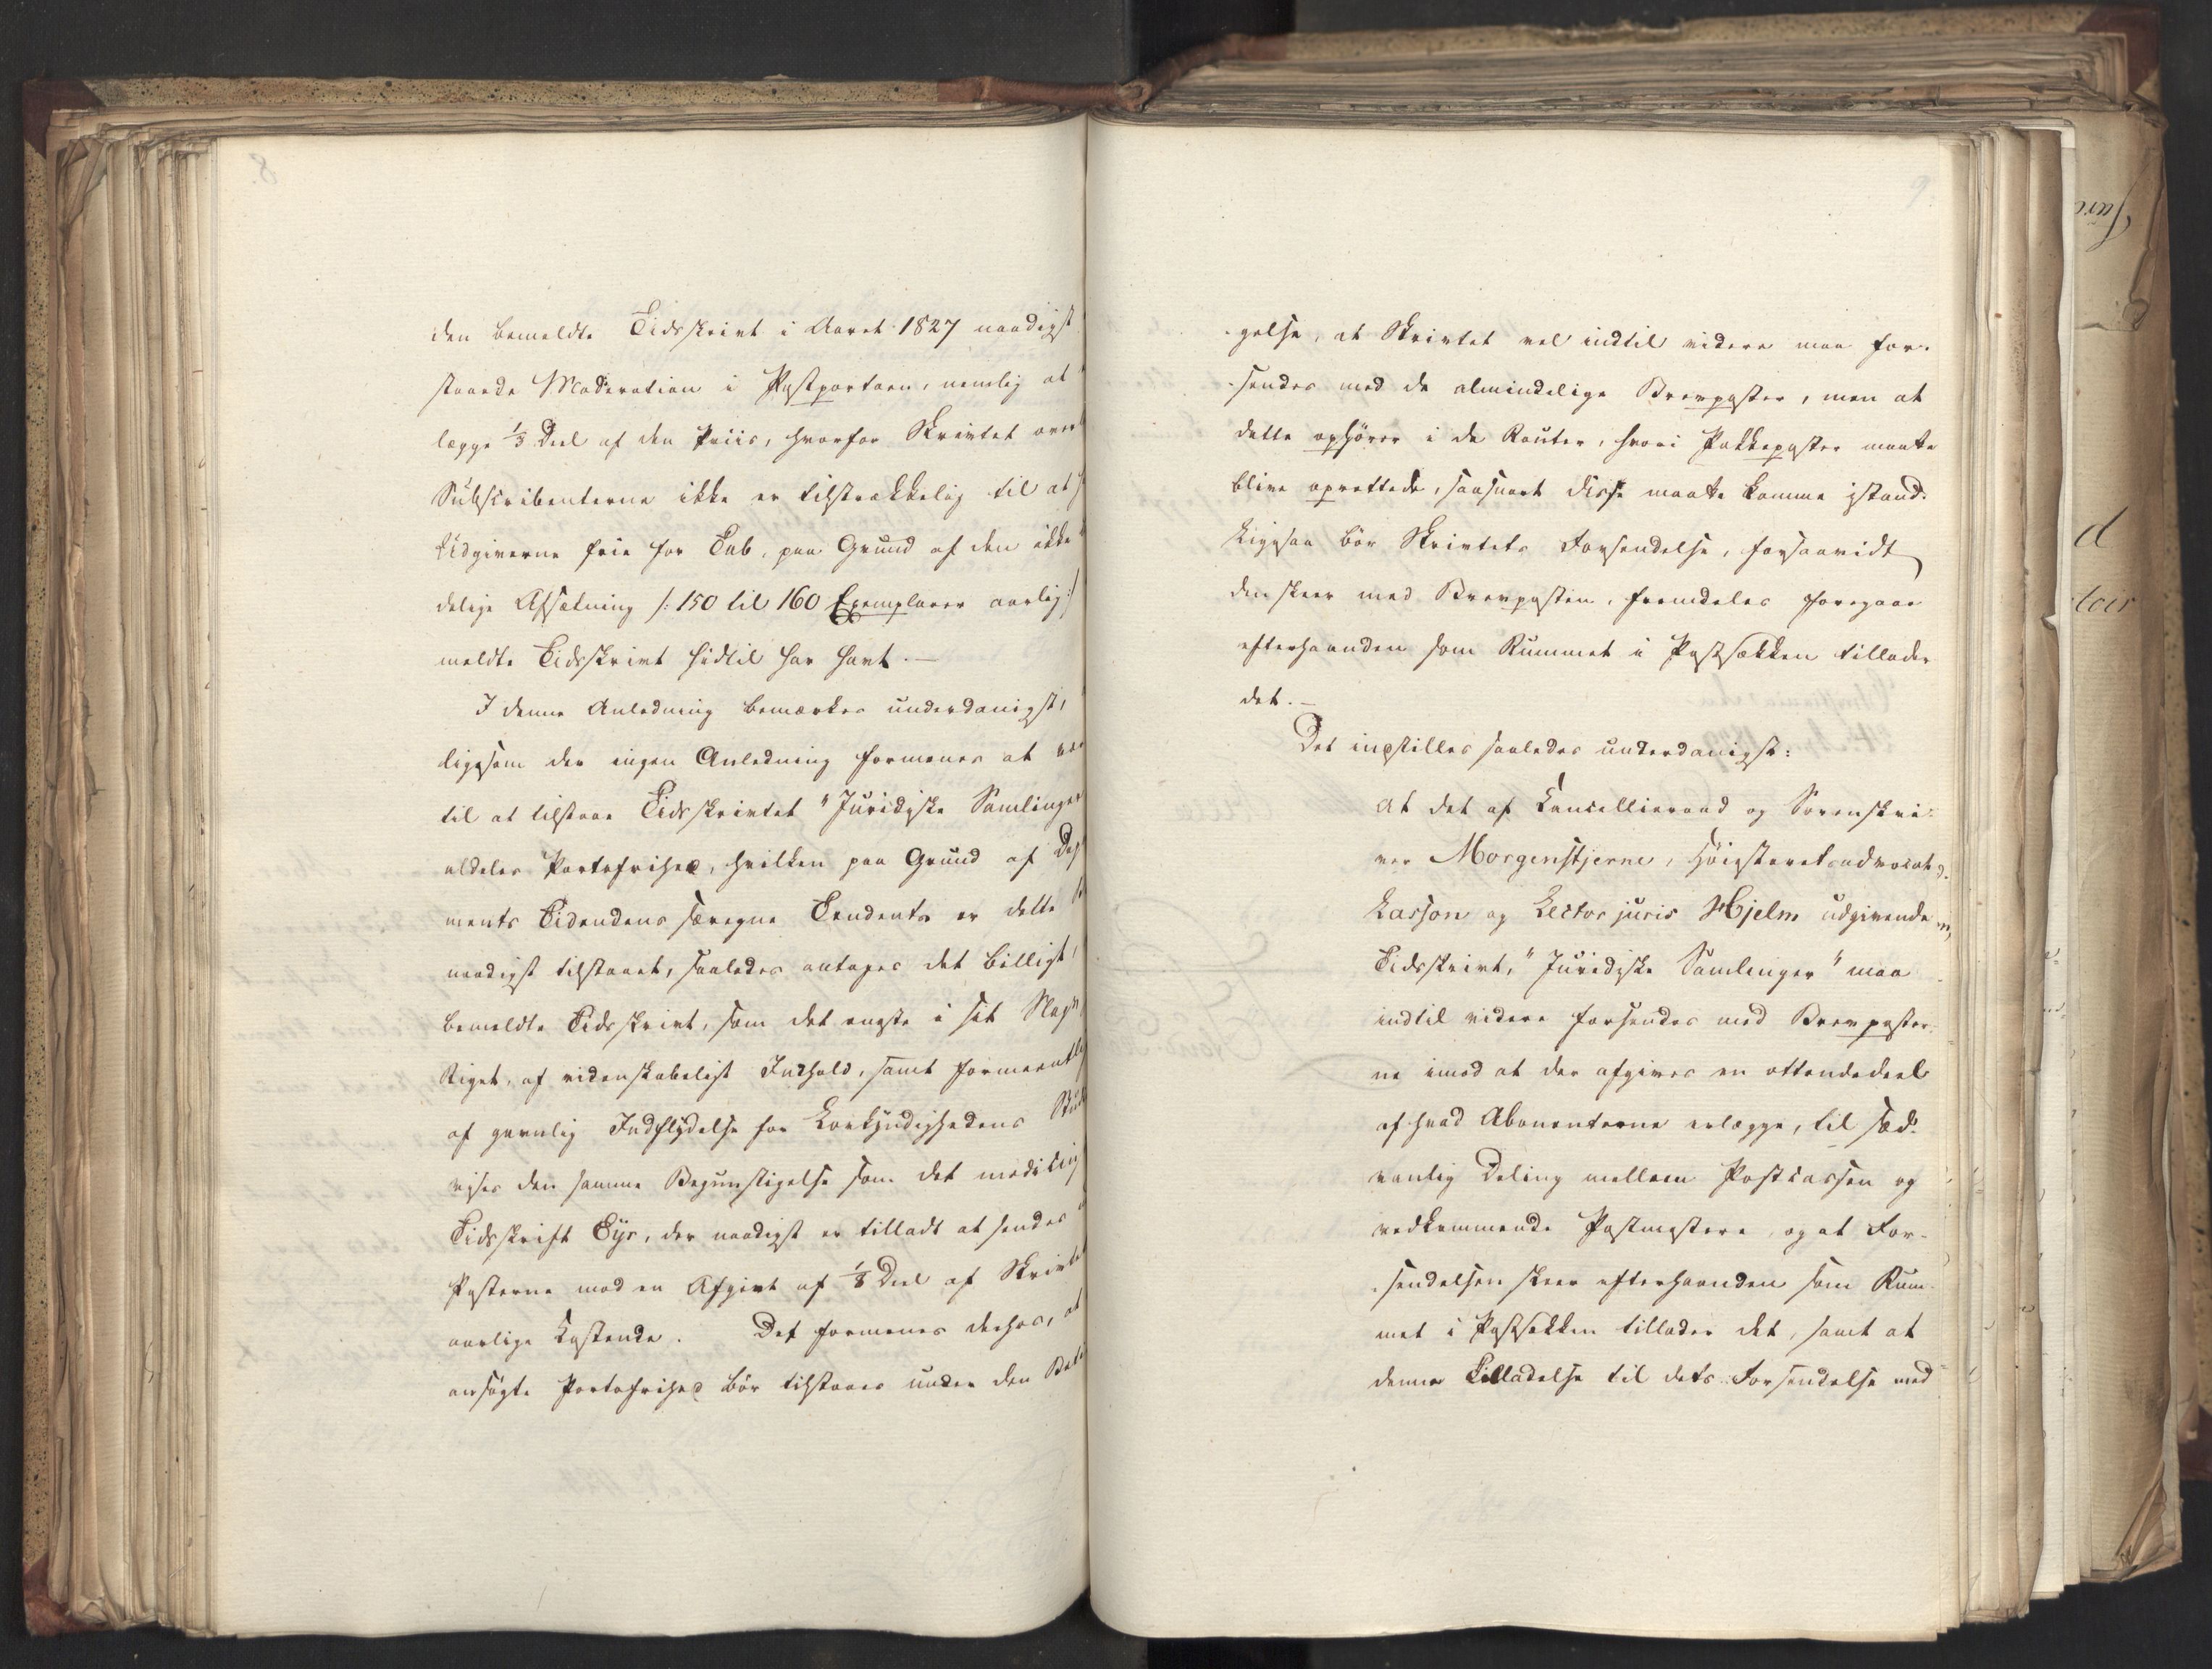 den bemeldte Tidsskrivt i Aaret 1827 naadigst
staaede Moderation i Postportoen, nemlig at
lægge 1/3 Deel af den Priis, hvorfor Skrivtet over
Subscribenterne ikke er tilstrækkelig til at
Udgiverne frie for Tab, paa Grund af den ikke
delige Afsætning /: 150 til 160 Exemplarer aarlig :/
meldte Tidsskrivt hidtil har havt. —
I denne Anledning bemærkes underdanigst,
ligesom der ingen Anledning formenes at væ
til at tilstaae Tidsskrivtet "Juridiske Samlinger
aldeles Portofrihed, hvilken paa Grund af Dep
ments Tidendens særegne Tendents er dette
naadigst tilstaaet, saaledes antages det billigt,
bemeldte Tidsskrivt, som det eneste i sit Slags
Riget, af videnskabeligt Indhold, samt formeentlig
af gavnlig Indflydelse for Lovkyndighedens
vises den samme Begunstigelse som det medicin
Tidsskrift Eyr, der naadigst er tilladt at sendes
Posterne mod en Afgivt af 1/8 Deel af Skrivte
aarlige Kostende. Det formenes derhos, at
ansøgte Portofrihed bør tilstaaes under den Beti
9
gelse, at Skrivtet vel indtil videre maa for-
sendes med de almindelige Brevposter, men at
dette ophører i de Router, hvori Pakkeposter maatte
blive oprettede, saasnart disse maatte komme istand.
Ligesaa bør Skrivtets Forsendelse, forsaavidt
den skeer med Brevposten, fremdeles foregaae
efterhaanden som Rummet i Postsækken tillader
det. —
Det instilles saaledes underdanigst:
At det af Cancellieraad og Sorenskri-
ver Morgenstjerne, Høiesteretsadvocat
Lasson og Lector juris Hjelm udgivende
Tidsskrivt, "Juridiske Samlinger" maa
indtil videre forsendes med Brevposter-
ne imod at der afgives en ottendedeel
af hvad Abonenterne erlægge, til sæd-
vanlig Deling mellem Postcassen og
vedkommende Postmestere, og at For-
sendelsen skeer efterhaanden som Rum-
met i Postsækken tillader det, samt at
denne Tilladelse til dets Forsendelse med